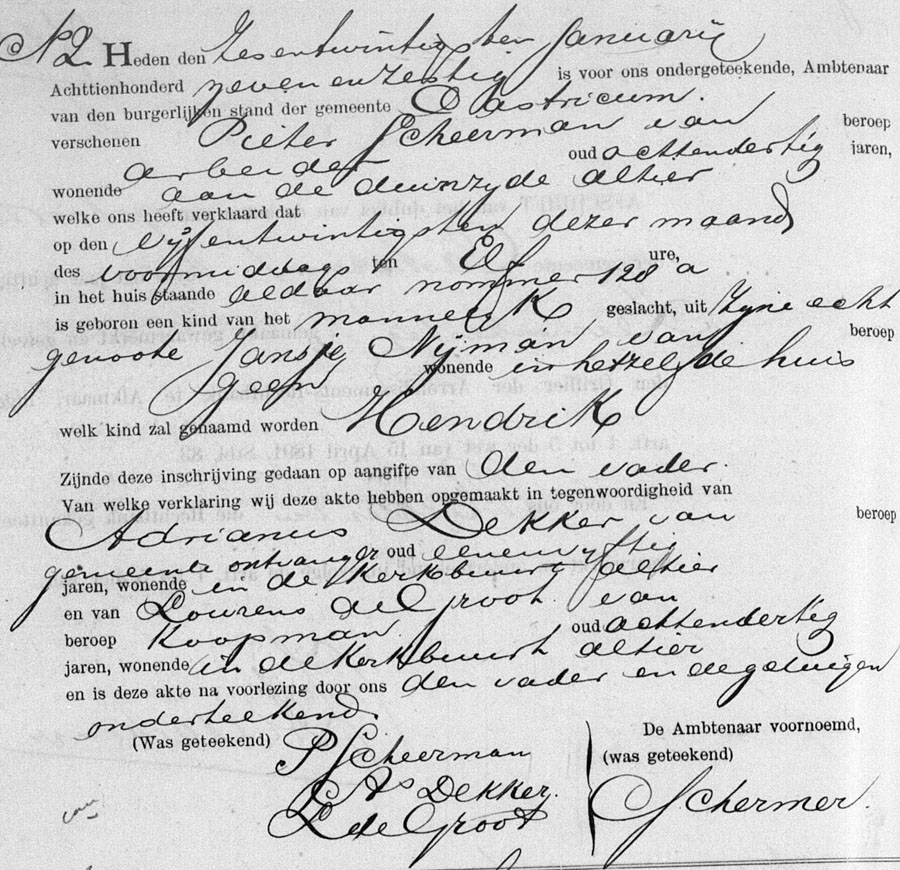 No 2. Heden den Zesentwintigsten Januarij
Achttienhonderd zeven en zestig is voor ons ondergeteekende, Ambtenaar
van den burgerlijken stand der gemeente Castricum.
verschenen Pieter Scheerman van beroep
arbeider oud achtendertig jaren,
wonende aan de duinzyde alhier
welke ons heeft verklaard dat
op den vijfentwintigsten dezer maand
des voormiddags ten Elf ure,
in het huis staande aldaar nommer 128 a
is geboren een kind van het mannelyk geslacht, uit zyne echt
genoote Jansje Nijman van beroep
geen wonende in hetzelfde huis
welk kind zal genaamd worden Hendrik
Zijnde deze inschrijving gedaan op aangifte van den vader.
Van welke verklaring wij deze akte hebben opgemaakt in tegenwoordigheid van
Adrianus Dekker van beroep
gemeente ontvanger oud eenenvyftig
jaren, wonende in de Kerkbuurt alhier
en van Lourens de Groot van
beroep Koopman. oud achtendertig
jaren, wonende in de Kerkbuurt alhier
en is deze akte na voorlezing door ons den vader en de getuigen
onderteekend.
(Was geteekend) P Scheerman
As Dekker.
L de Groot
De Ambtenaar voornoemd,
(was geteekend)
Schermer.